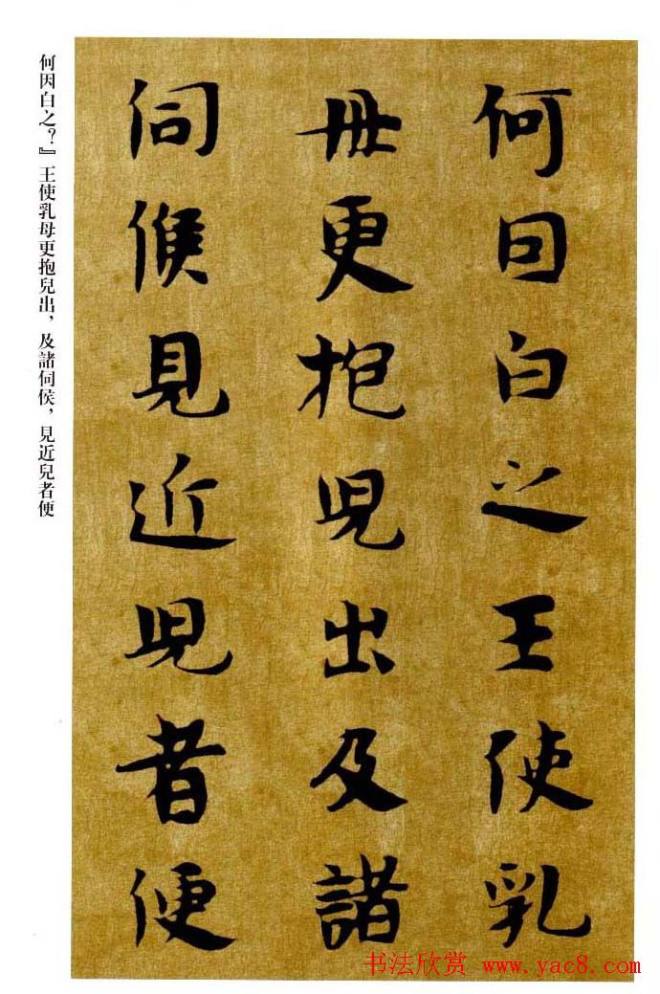 何囙白之王使乳
毋更抱児出及諸
伺候見近児者便
何因白之？』王使乳母更抱兒出，及諸伺侯，見近兒者便
书法欣赏 www.yac8.com